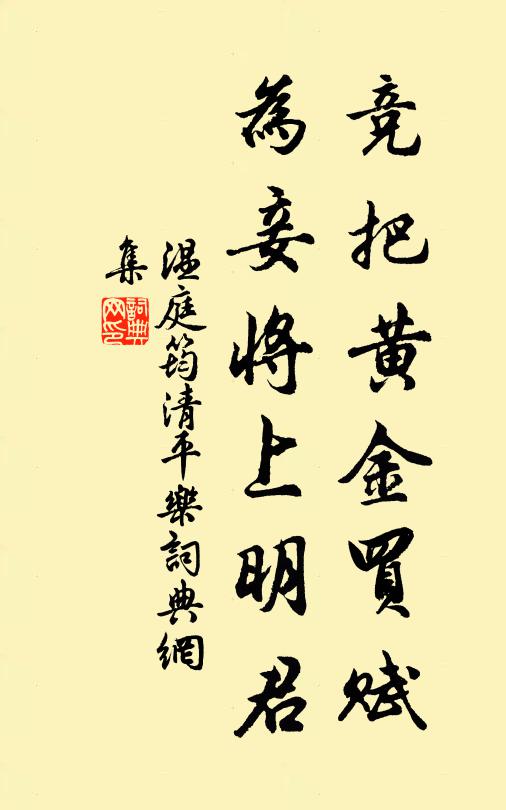 竞把黃金買賦
為妾將上明君
溫庭筠清平樂詞典網
集
詞典
网印